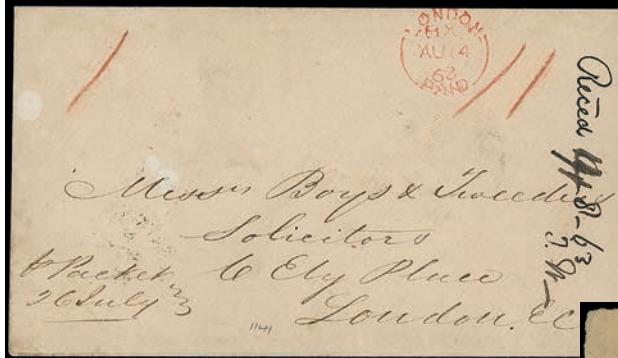 LONDON
AU 14
63
PAID
Recd
8-63
Messrs Boys & Tweedies
Solicitors
6 Ely Place
London. EC
p Packet
26 July
1141